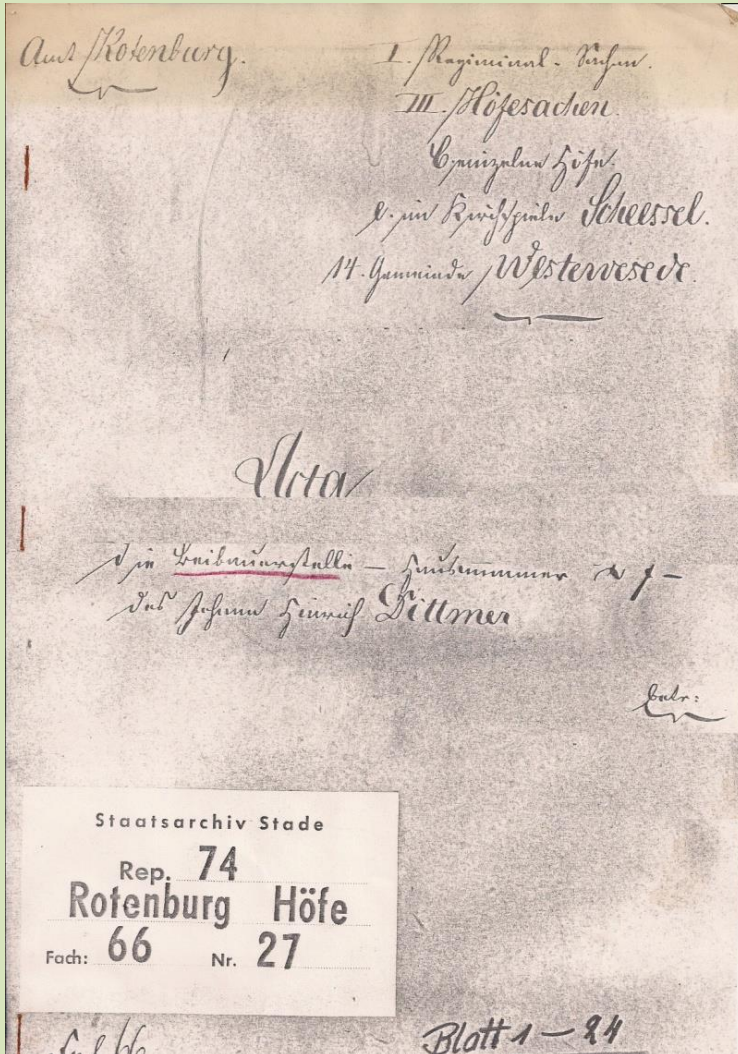 Amt Rotenburg.
I. Regiminal-Sachen.
III. Höfesachen.
einzelne Höfe.
im Kirchspiele Scheessel.
14. Gemeinde Westervesede.
Acta
die Beibauerstelle — Hausnummer 7 —
des Johann Hinrich Dittmer
betr:
Staatsarchiv Stade
Rep. 74
Rotenburg Höfe
Fach: 66 Nr. 27
Blatt 1 — 24